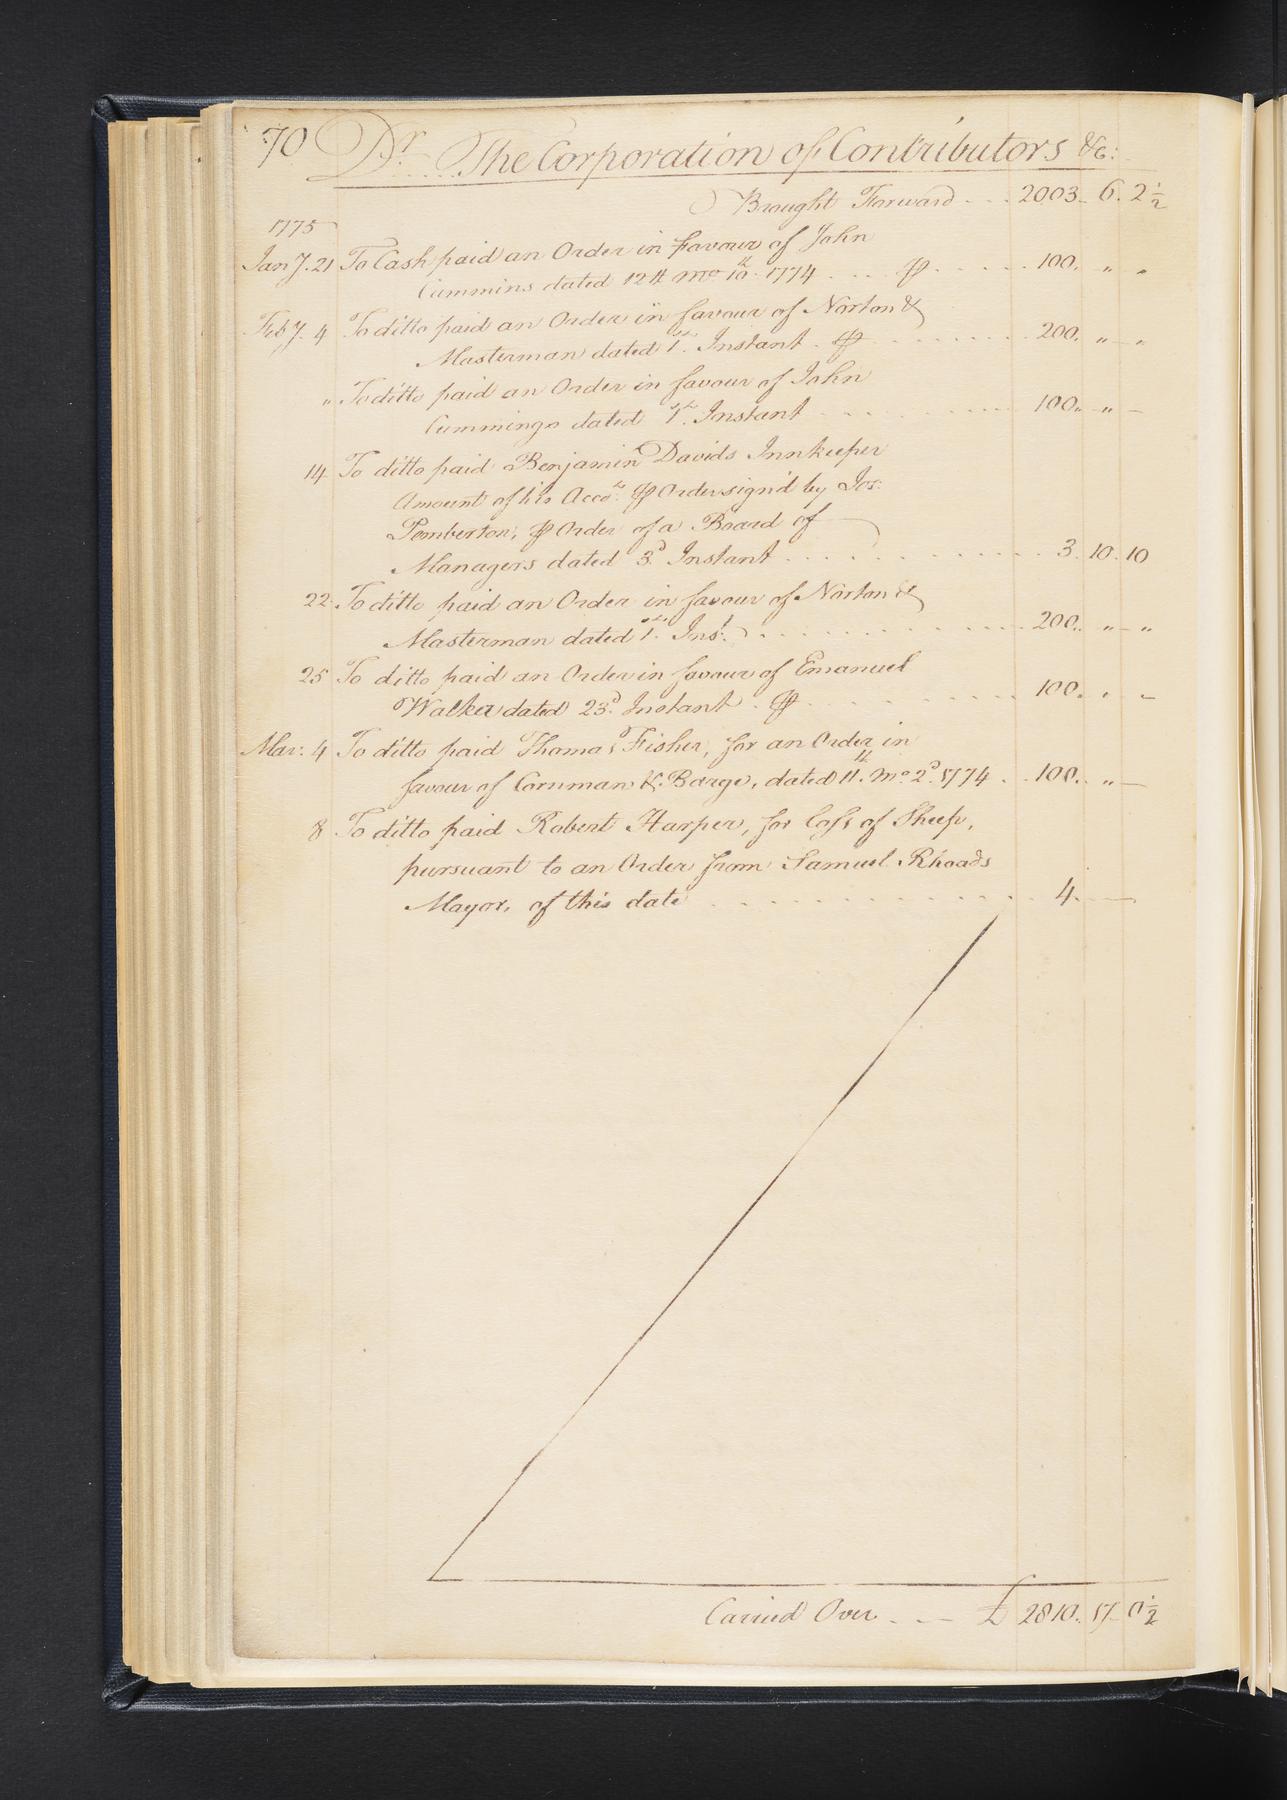 70 Dr. The Corporation of Contributors &c:
Brought Forward - - - 2003. 6. 2½
1775
Jany. 21 To Cash paid an Order in favour of John
Cummins dated 12th mo. 10th 1774 . . . . ⅌ . . . . . . 100. " "
Feby. 4 To ditto paid an Order in favour of Norton &
Masterman dated 1st. Instant . ⅌ . . . . . . . . . 200. " "
" To ditto paid an Order in favour of John
Cummings dated 1st. Instant . . . . . . . . . . . 100 " " -
14 To ditto paid Benjamin Davids Innkeeper
Amount of his Acco.ts ⅌ Order sign'd by Jos:
Pemberton, ⅌ Order of a Board of
Managers dated 3d. Instant . . . . . . . . . . . . 3. 10. 10
22 To ditto paid an Order in favour of Norton &
Masterman dated 1st. Inst. . . . . . . . . . . . . 200. " - "
25 To ditto paid an Order in favour of Emanuel
Walker dated 23d. Instant . ⅌ . . . . . . . . . . 100. " -
Mar: 4 To ditto paid Thomas Fisher, for an Order in
favour of Cornman & Barge, dated 11th. Mo. 2d. 1774 . . 100. " -
8 To ditto paid Robert Harper, for Loss of Sheep,
pursuant to an Order from Samuel Rhoads
Mayor, of this date . . . . . . . . . . . . . . . 4. -
Carried Over - - £ 2810. 17. 0½